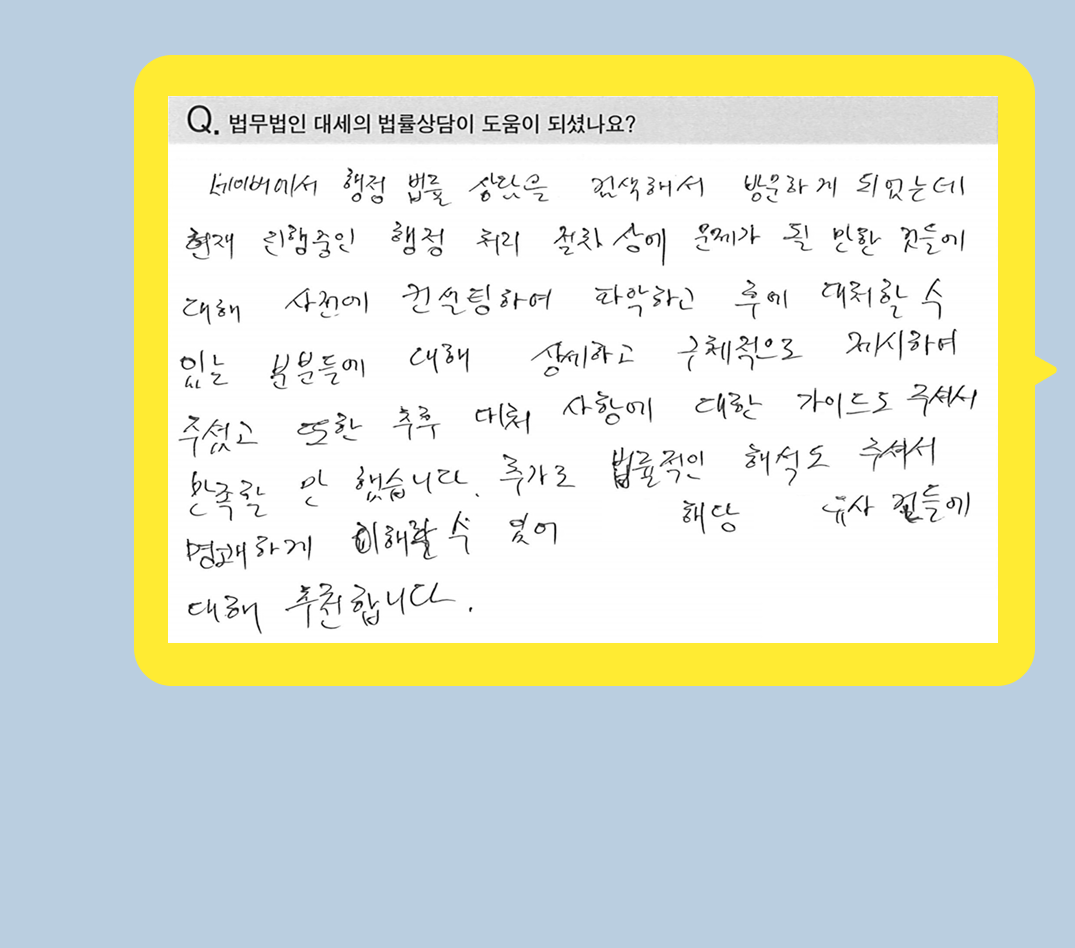 Q. 법무법인 대세의 법률상담이 도움이 되셨나요?
네이버에서 행정 법률 상담을 검색해서 방문하게 되었는데
현재 진행중인 행정 처리 절차 상에 문제가 될 만한 것들에
대해 사전에 컨설팅하여 파악하고 후에 대처할 수
있는 부분들에 대해 상세하고 구체적으로 제시하여
주셨고 또한 추후 대처 사항에 대한 가이드도 주셔서
만족할 만 했습니다. 추가로 법률적인 해석도 주셔서
명쾌하게 이해할 수 있어 해당 유사 건들에
대해 추천합니다.